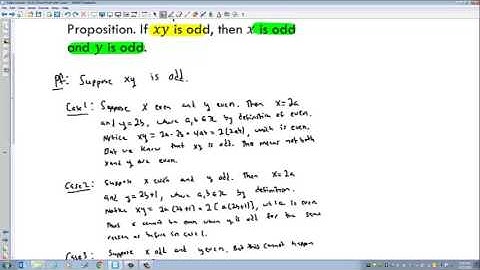 Proposition. If xy is odd, then x is odd
and y is odd.
Pf: Suppose xy is odd.
Case 1: Suppose x even and y even. Then x=2a
and y=2b, where a,b∈ℤ by definition of even.
Notice xy = 2a·2b = 4ab = 2(2ab), which is even.
But we know that xy is odd. This means not both
x and y are even.
Case 2: Suppose x even and y odd. Then x=2a
and y=2b+1, where a,b∈ℤ by definition.
Notice xy = 2a(2b+1) = 2[a(2b+1)], which is even
Thus x cannot be even when y is odd for the same
reason as before in case 1.
Case 3: Suppose x odd and y even. But this cannot happen